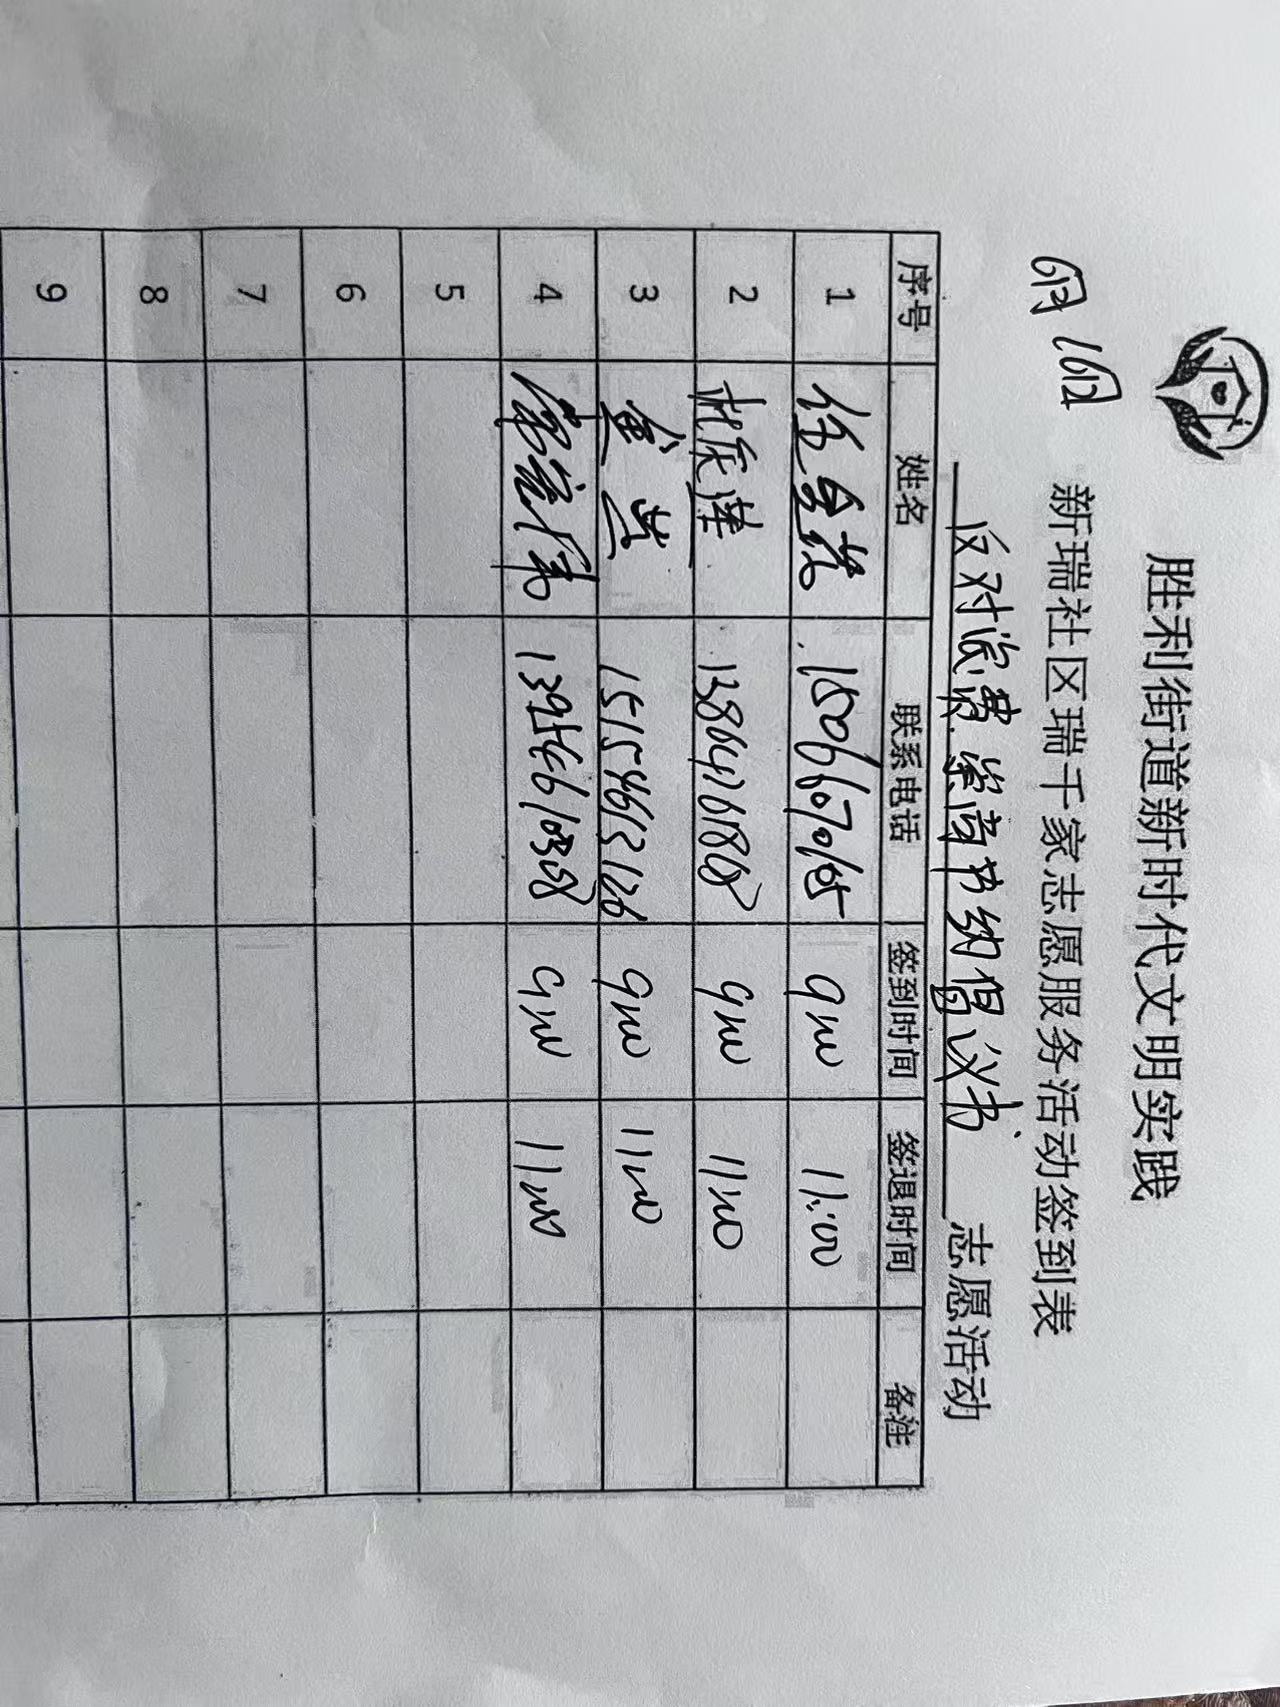 胜利街道新时代文明实践
新瑞社区瑞千家志愿服务活动签到表
6月16日
反对浪费 崇尚节约倡议书 志愿活动
序号 姓名 联系电话 签到时间 签退时间 备注
1 15066070165 9:00 11:00
2 杜庆莲 13864261868 9:00 11:00
3 15154613126 9:00 11:00
4 13954610368 9:00 11:00
5
6
7
8
9